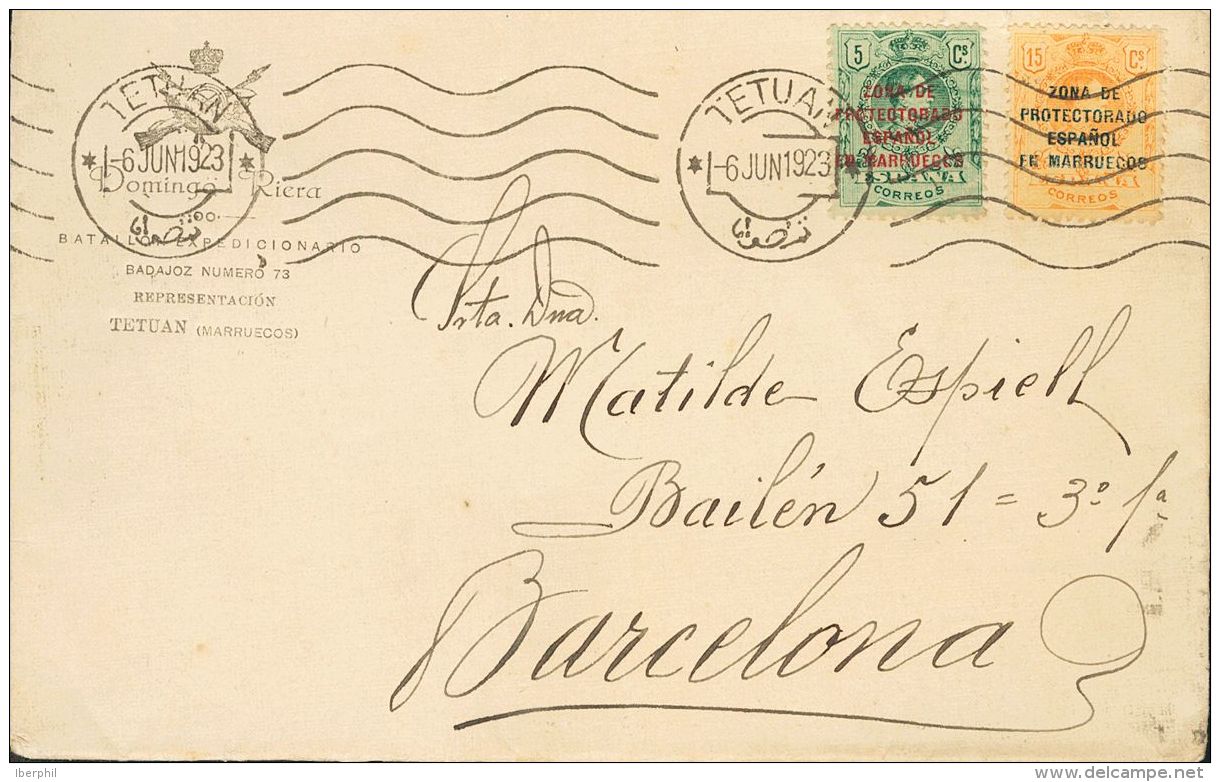 Domingo Riera
BATALLÓN EXPEDICIONARIO
BADAJOZ NUMERO 73
REPRESENTACIÓN
TETUAN (MARRUECOS)
TETUAN
-6 JUN 1923
TETUAN
-6 JUN 1923
5 Cs
ZONA DE
PROTECTORADO
ESPAÑOL
EN MARRUECOS
ESPAÑA
CORREOS
15 Cs
ZONA DE
PROTECTORADO
ESPAÑOL
EN MARRUECOS
CORREOS
Srta. Dña.
Matilde Espiell
Bailén 51 = 3º 1ª
Barcelona
Iberphil
www.delcampe.net